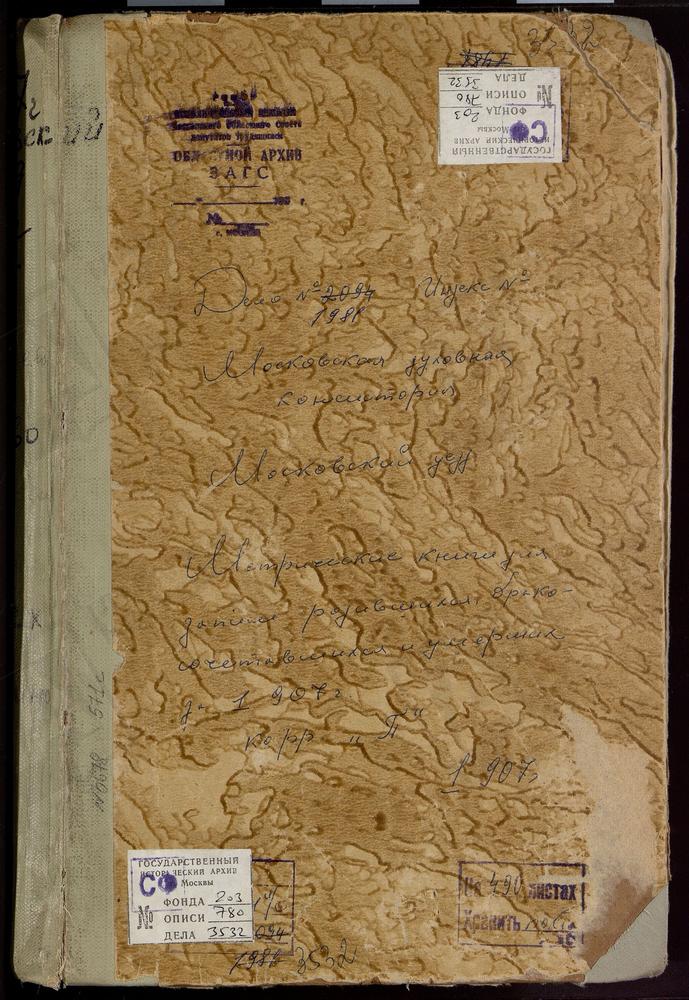 3532
ГОСУДАРСТВЕННЫЙ
ИСТОРИЧЕСКИЙ АРХИВ
Москвы
СФ
№
ФОНДА 203
ОПИСИ 780
ДЕЛА 3532
Московского областного совета
депутатов трудящихся
ОБЛАСТНОЙ АРХИВ
ЗАГС
№
г. Москва
Дело № 2094 Индекс №
1988
Московская духовная
консистория
Московский уезд
Метрические книги для
записи родившихся, брако-
сочетавшихся и умерших
за 1907 г.
корр „П“
1907 г.
ГОСУДАРСТВЕННЫЙ
ИСТОРИЧЕСКИЙ АРХИВ
СФ Москвы
№
ФОНДА 203
ОПИСИ 780
ДЕЛА 3532
На 490 листах
Хранить
3532